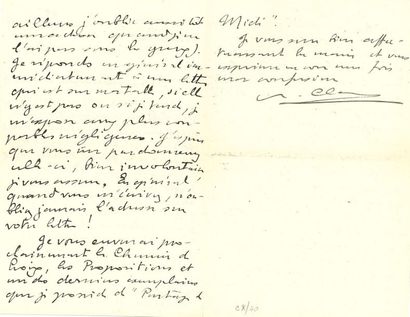 ailleurs j'oublie aussitôt
une action quand je ne
l'ai pas sous les yeux).
Je réponds en général im-
médiatement à une lettre
qui est sur ma table, si elle
n'y est pas ou si j'attends, je
m'expose aux plus cou-
pables négligences. J'espère
que vous me pardonnerez
celle-ci, bien involontaire
je vous assure. En général
quand vous m'écrivez, n'ou-
bliez jamais l'adresse sur
votre lettre !
Je vous enverrai pro-
chainement le Chemin de
Croix, les Propositions et
un des derniers exemplaires
que je possède de "Partage de
Midi".
Je vous serre bien affec-
tueusement la main et vous
exprime encore une fois
ma confusion